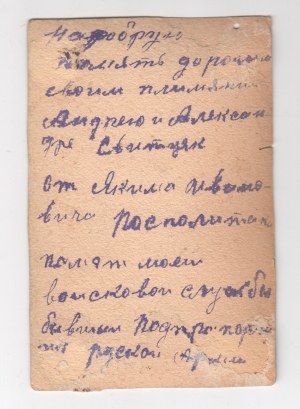 На добрую
память дорогим
своим племяни
Андрею и Алексан
дре Свитцяк
от Якима Ивано
вича Росполитак
памят моей
воисковой службы
бывший подпрапор
руской Арми